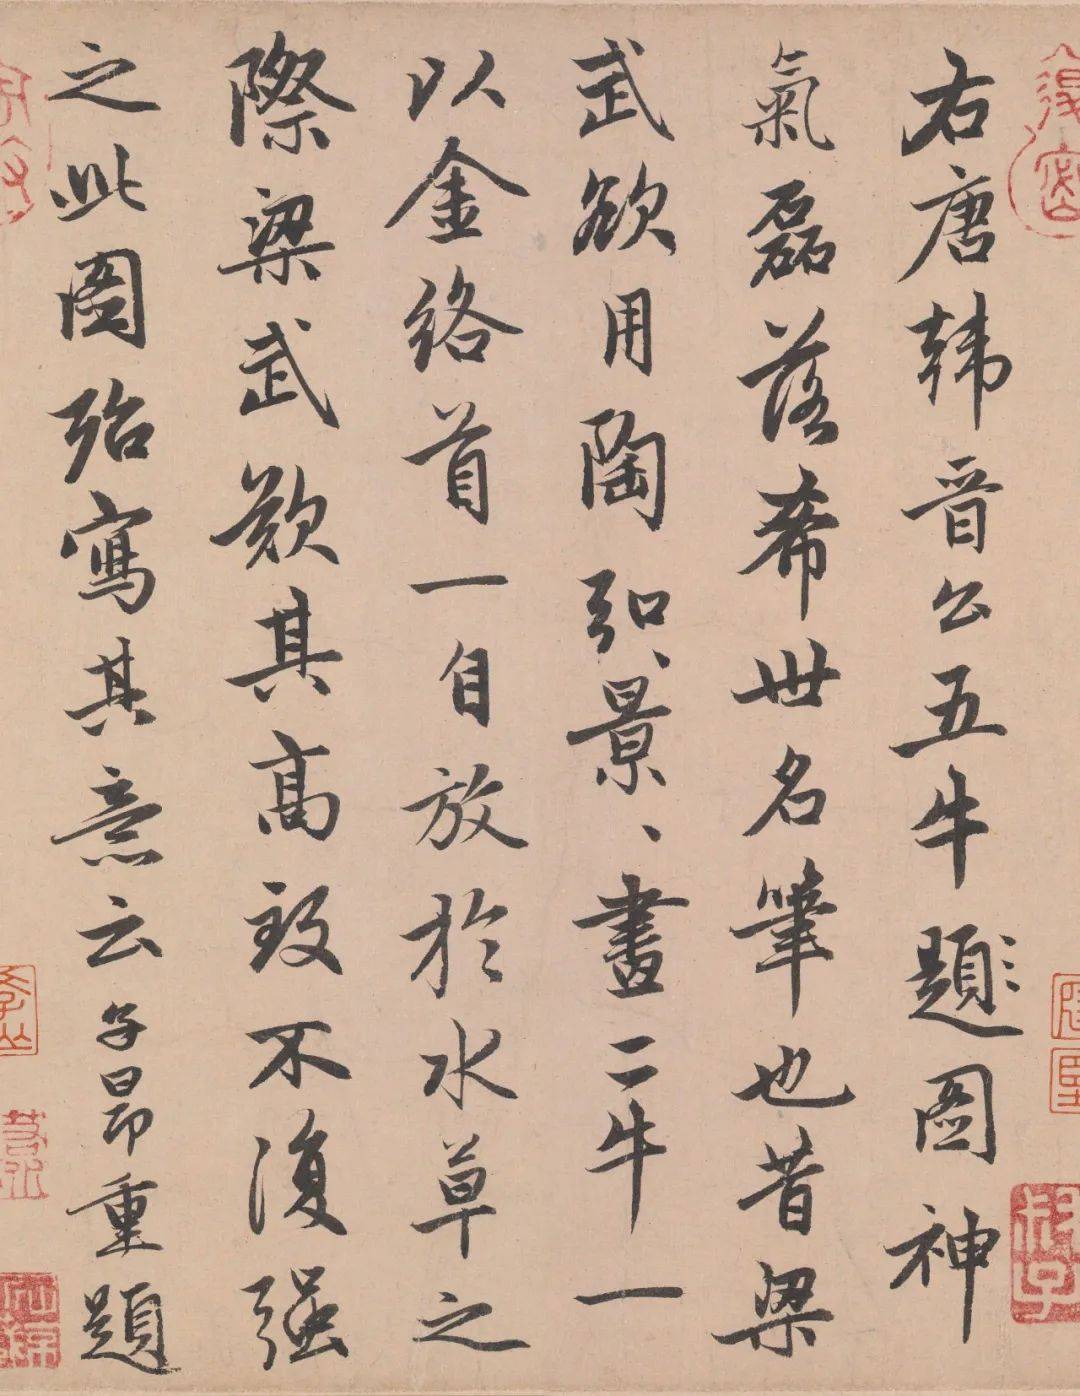 右唐韩晋公五牛題圖神
氣磊落希世名筆也昔梁
武欲用陶弘景、畫二牛一
以金络首一自放於水草之
際梁武歎其高致不復强
之此圖殆寫其意云子昂重題